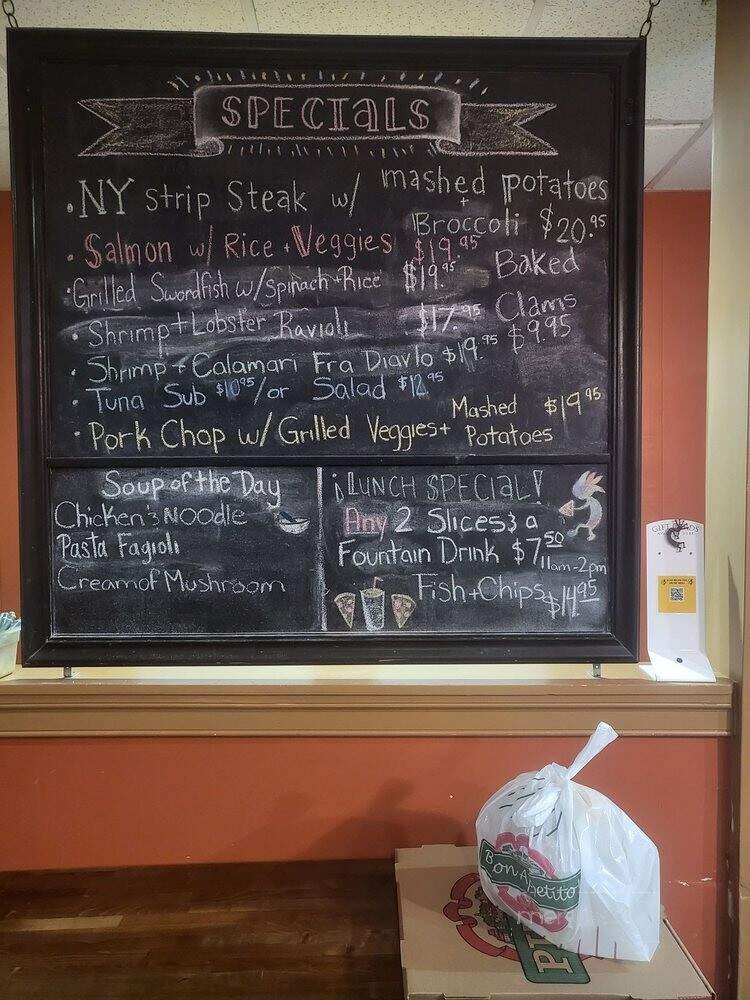 SPECIALS
• NY Strip Steak w/ mashed potatoes
+ Broccoli $20.95
• Salmon w/ Rice + Veggies $19.95
• Grilled Swordfish w/ Spinach + Rice $19.95
Baked
Clams
$9.95
• Shrimp + Lobster Ravioli $17.95
• Shrimp + Calamari Fra Diavlo $19.95
• Tuna Sub $10.95 / or Salad $12.95
• Pork Chop w/ Grilled Veggies + Mashed Potatoes $19.95
Soup of the Day
Chicken & Noodle
Pasta Fagioli
Cream of Mushroom
¡LUNCH SPECIAL!
Any 2 Slices & a
Fountain Drink $7.50
11am-2pm
Fish + Chips $14.95
GIFT CARDS
Bon Appetito